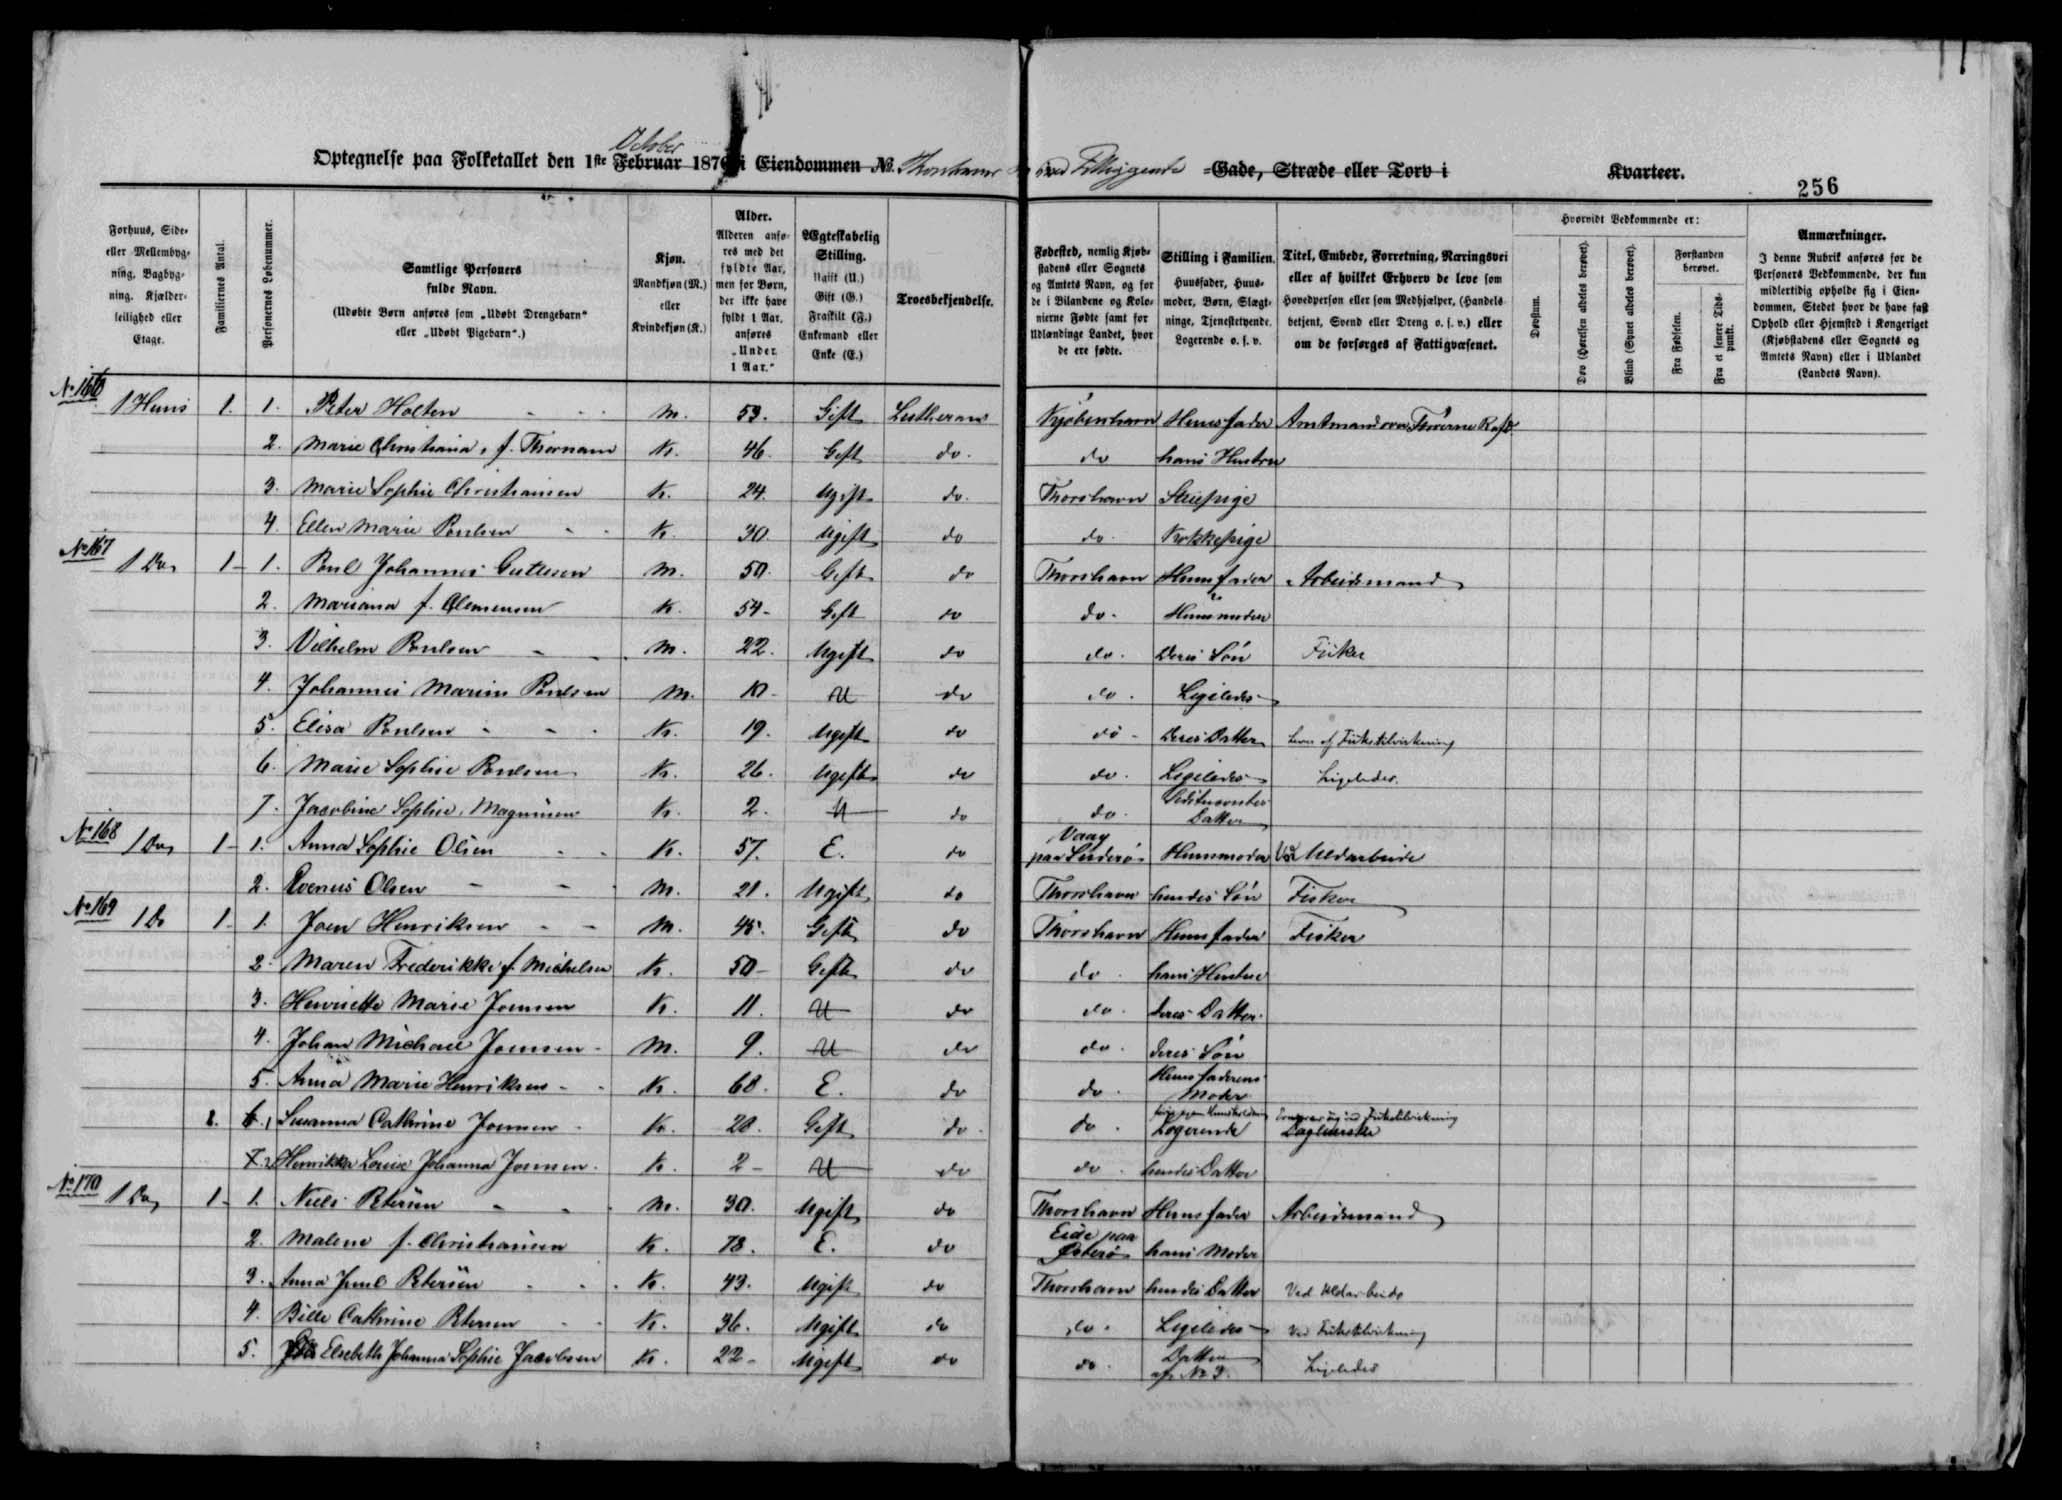 October
Optegnelse paa Folketallet den 1ste Februar 187 i Eiendommen No. Thorshavn med Tilliggende Gade, Stræde eller Torv i Kvarteer.
256
Forhuus, Side- eller Mellembyg-ning, Bagbyg-ning. Kjælder-leilighed eller Etage.
Familiernes Antal.
Personernes Løbenummer.
Samtlige Personers fulde Navn.
(Udøbte Børn anføres som „Udøbt Drengebarn“ eller „Udøbt Pigebarn“.)
Kjøn. Mandkjøn (M.) eller Kvindekjøn (K.)
Alder. Alderen anfø-res med det fyldte Aar, men for Børn, der ikke have fyldt 1 Aar, anføres „Under 1 Aar.“
Ægteskabelig Stilling. Ugift (U.) Gift (G.) Fraskilt (F.) Enkemand eller Enke (E.)
Troesbekjendelse.
Fødested, nemlig Kjøb-stadens eller Sognets og Amtets Navn, og for de i Bilandene og Kolo-nierne Fødte samt for Udlændinge Landet, hvor de ere fødte.
Stilling i Familien. Huusfader, Huus-moder, Børn, Slægt-ninge, Tjenestetyende, Logerende o. s. v.
Titel, Embede, Forretning, Næringsvei eller af hvilket Erhverv de leve som Hovedperson eller som Medhjælper, (Handels-betjent, Svend eller Dreng o. s. v.) eller om de forsørges af Fattigvæsenet.
Hvorvidt Vedkommende er:
Døvstum.
Døv (Hørelsen aldeles berøvet).
Blind (Synet aldeles berøvet).
Forstanden berøvet.
Fra Fødselen.
Fra et senere Tids-punkt.
Anmærkninger.
I denne Rubrik anføres for de Personers Vedkommende, der kun midlertidig opholde sig i Eien-dommen, Stedet hvor de have fast Ophold eller Hjemsted i Kongeriget (Kjøbstadens eller Sognets og Amtets Navn) eller i Udlandet (Landets Navn).
No 166 1 Huus 1. 1. Peter Holten M. 53. Gift Lutheran Kjøbenhavn Huusfader Amtmand over Færøerne
2. Marie Christiana, f. Thornam K. 46. Gift do. do hans Hustru
3. Marie Sophie Christiansen K. 24. Ugift do. Thorshavn Stuepige
4. Ellen Marie Poulsen K. 30. Ugift do do. Kokkepige
No 167 1 Do 1 1. Poul Johannes Guttesen M. 50. Gift do Thorshavn Huusfader Arbeidsmand
2. Mariana f. Clemensen K. 54 Gift do do. Huusmoder
3. Vilhelm Poulsen M. 22. Ugift do do. Deres Søn Fisker
4. Johannes Marius Poulsen M. 10 U do do. Ligeledes
5. Elisa Poulsen K. 19. Ugift do do Deres Datter Lever af Fisketilvirkning
6. Marie Sophie Poulsen K. 26. Ugift do do. Ligeledes Ligeledes.
7. Jacobine Sophie Magnusen K. 2. U do do. Datter
No 168 1 Do 1 1. Anna Sophie Olsen K. 57. E. do Vaag paa Suderø Huusmoder Ved Uldarbeide
2. Olsen M. 21. Ugift do Thorshavn hendes Søn Fisker
No 169 1 Do 1 1. Joen Henriksen M. 45. Gift do Thorshavn Huusfader Fisker
2. Maren Frederikke f. Michelsen K. 50 Gift do do. hans Hustru
3. Henriette Marie Joensen K. 11. U do do. deres Datter
4. Johan Michael Joensen M. 9. U do do. deres Søn
5. Anna Marie Henriksen K. 68. E. do do. Huusfaderens Moder
2. 6. 1 Susanna Cathrine Joensen K. 28. Gift do. do. Logerende Ernærer sig ved Fisketilvirkning
7. 2 Henrikka Lovise Johanna Joensen K. 2 U do do. hendes Datter
No 170 1 Do 1 1. Niels Petersen M. 30. Ugift do Thorshavn Huusfader Arbeidsmand
2. Malene f. Christiansen K. 78. E. do Eide paa Østerø hans Moder
3. Anna Juul Petersen K. 43. Ugift do Thorshavn hendes Datter Ved Uldarbeide
4. Bille Cathrine Petersen K. 36. Ugift do do. Ligeledes Ved Fisketilvirkning
5. Elsebeth Johanna Sophie Jacobsen K. 22 Ugift do do. Datter af No 3. Ligeledes